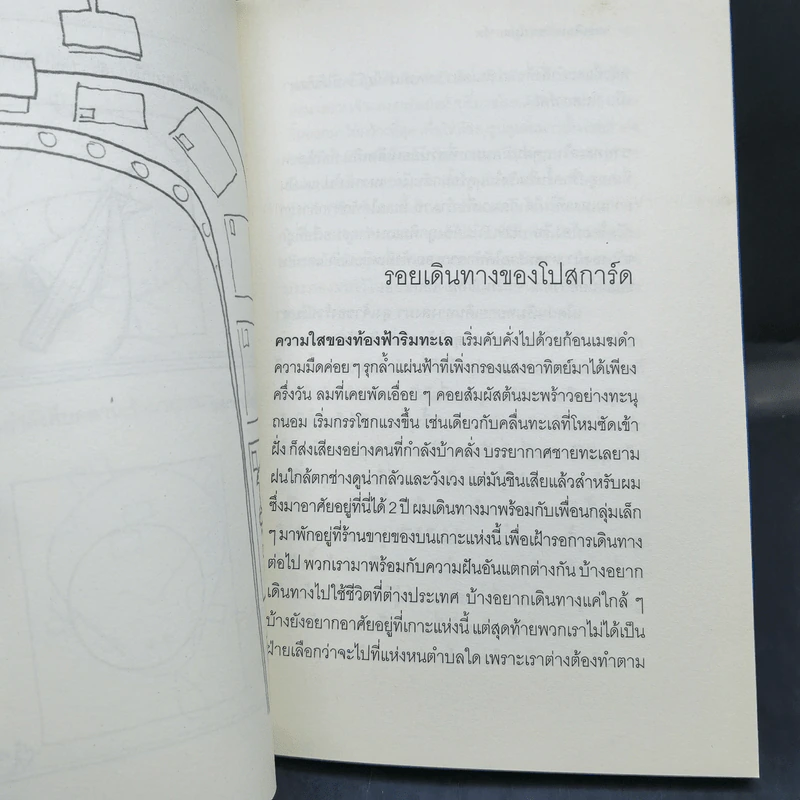 รอยเดินทางของโปสการ์ด
ความใสของท้องฟ้าริมทะเล เริ่มคับคั่งไปด้วยก้อนเมฆดำ
ความมืดค่อย ๆ รุกล้ำแผ่นฟ้าที่เพิ่งกรองแสงอาทิตย์มาได้เพียง
ครึ่งวัน ลมที่เคยพัดเอื่อย ๆ คอยสัมผัสต้นมะพร้าวอย่างทะนุ
ถนอม เริ่มกรรโชกแรงขึ้น เช่นเดียวกับคลื่นทะเลที่โหมซัดเข้า
ฝั่ง ก็ส่งเสียงอย่างคนที่กำลังบ้าคลั่ง บรรยากาศชายทะเลยาม
ฝนใกล้ตกช่างดูน่ากลัวและวังเวง แต่มันชินเสียแล้วสำหรับผม
ซึ่งมาอาศัยอยู่ที่นี่ได้ 2 ปี ผมเดินทางมาพร้อมกับเพื่อนกลุ่มเล็ก
ๆ มาพักอยู่ที่ร้านขายของบนเกาะแห่งนี้ เพื่อเฝ้ารอการเดินทาง
ต่อไป พวกเรามาพร้อมกับความฝันอันแตกต่างกัน บ้างอยาก
เดินทางไปใช้ชีวิตที่ต่างประเทศ บ้างอยากเดินทางแค่ใกล้ ๆ
บ้างยังอยากอาศัยอยู่ที่เกาะแห่งนี้ แต่สุดท้ายพวกเราไม่ได้เป็น
ฝ่ายเลือกว่าจะไปที่แห่งหนตำบลใด เพราะเราต่างต้องทำตาม